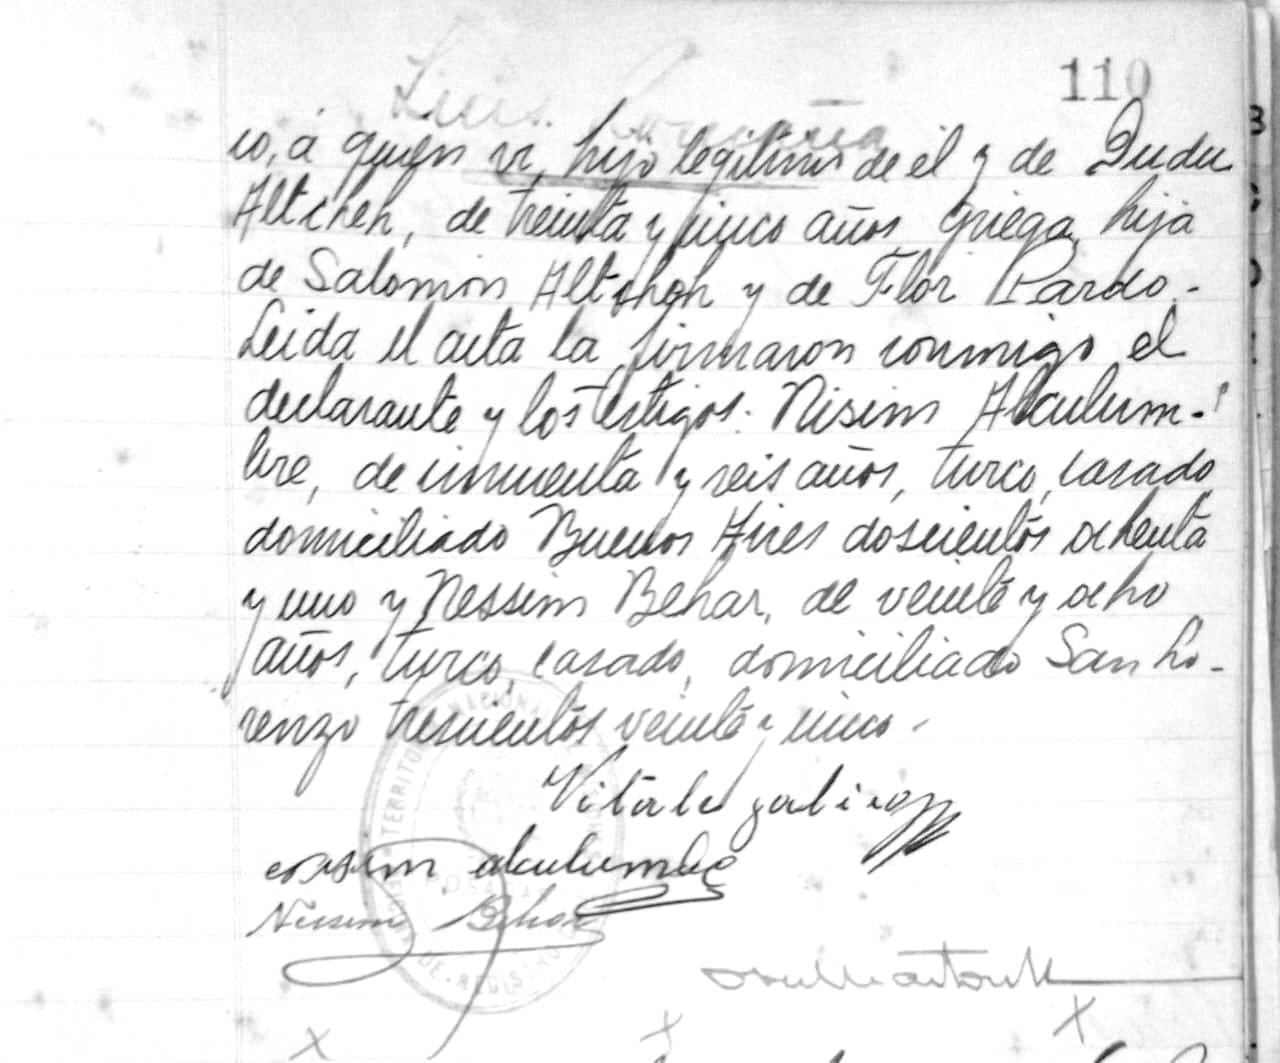 110
Luis
co, á quien vi, hijo legitimo de él y de Dudu
Altcheh, de treinta y cinco años, griega, hija
de Salomón Altcheh y de Flor Pardo.-
Leida el acta la firmaron conmigo el
declarante y los testigos: Nisim Alculum-
bre, de cincuenta y seis años, turco, casado,
domiciliado Buenos Aires doscientos ochenta
y uno y Nessim Behar, de veinte y ocho
años, turco, casado, domiciliado San Lo-
renzo trescientos veinte y cinco.-
Vitale
alculumbre
Nissim Behar
TERRITORIO NACIONAL
POSADAS
DE REGISTRO